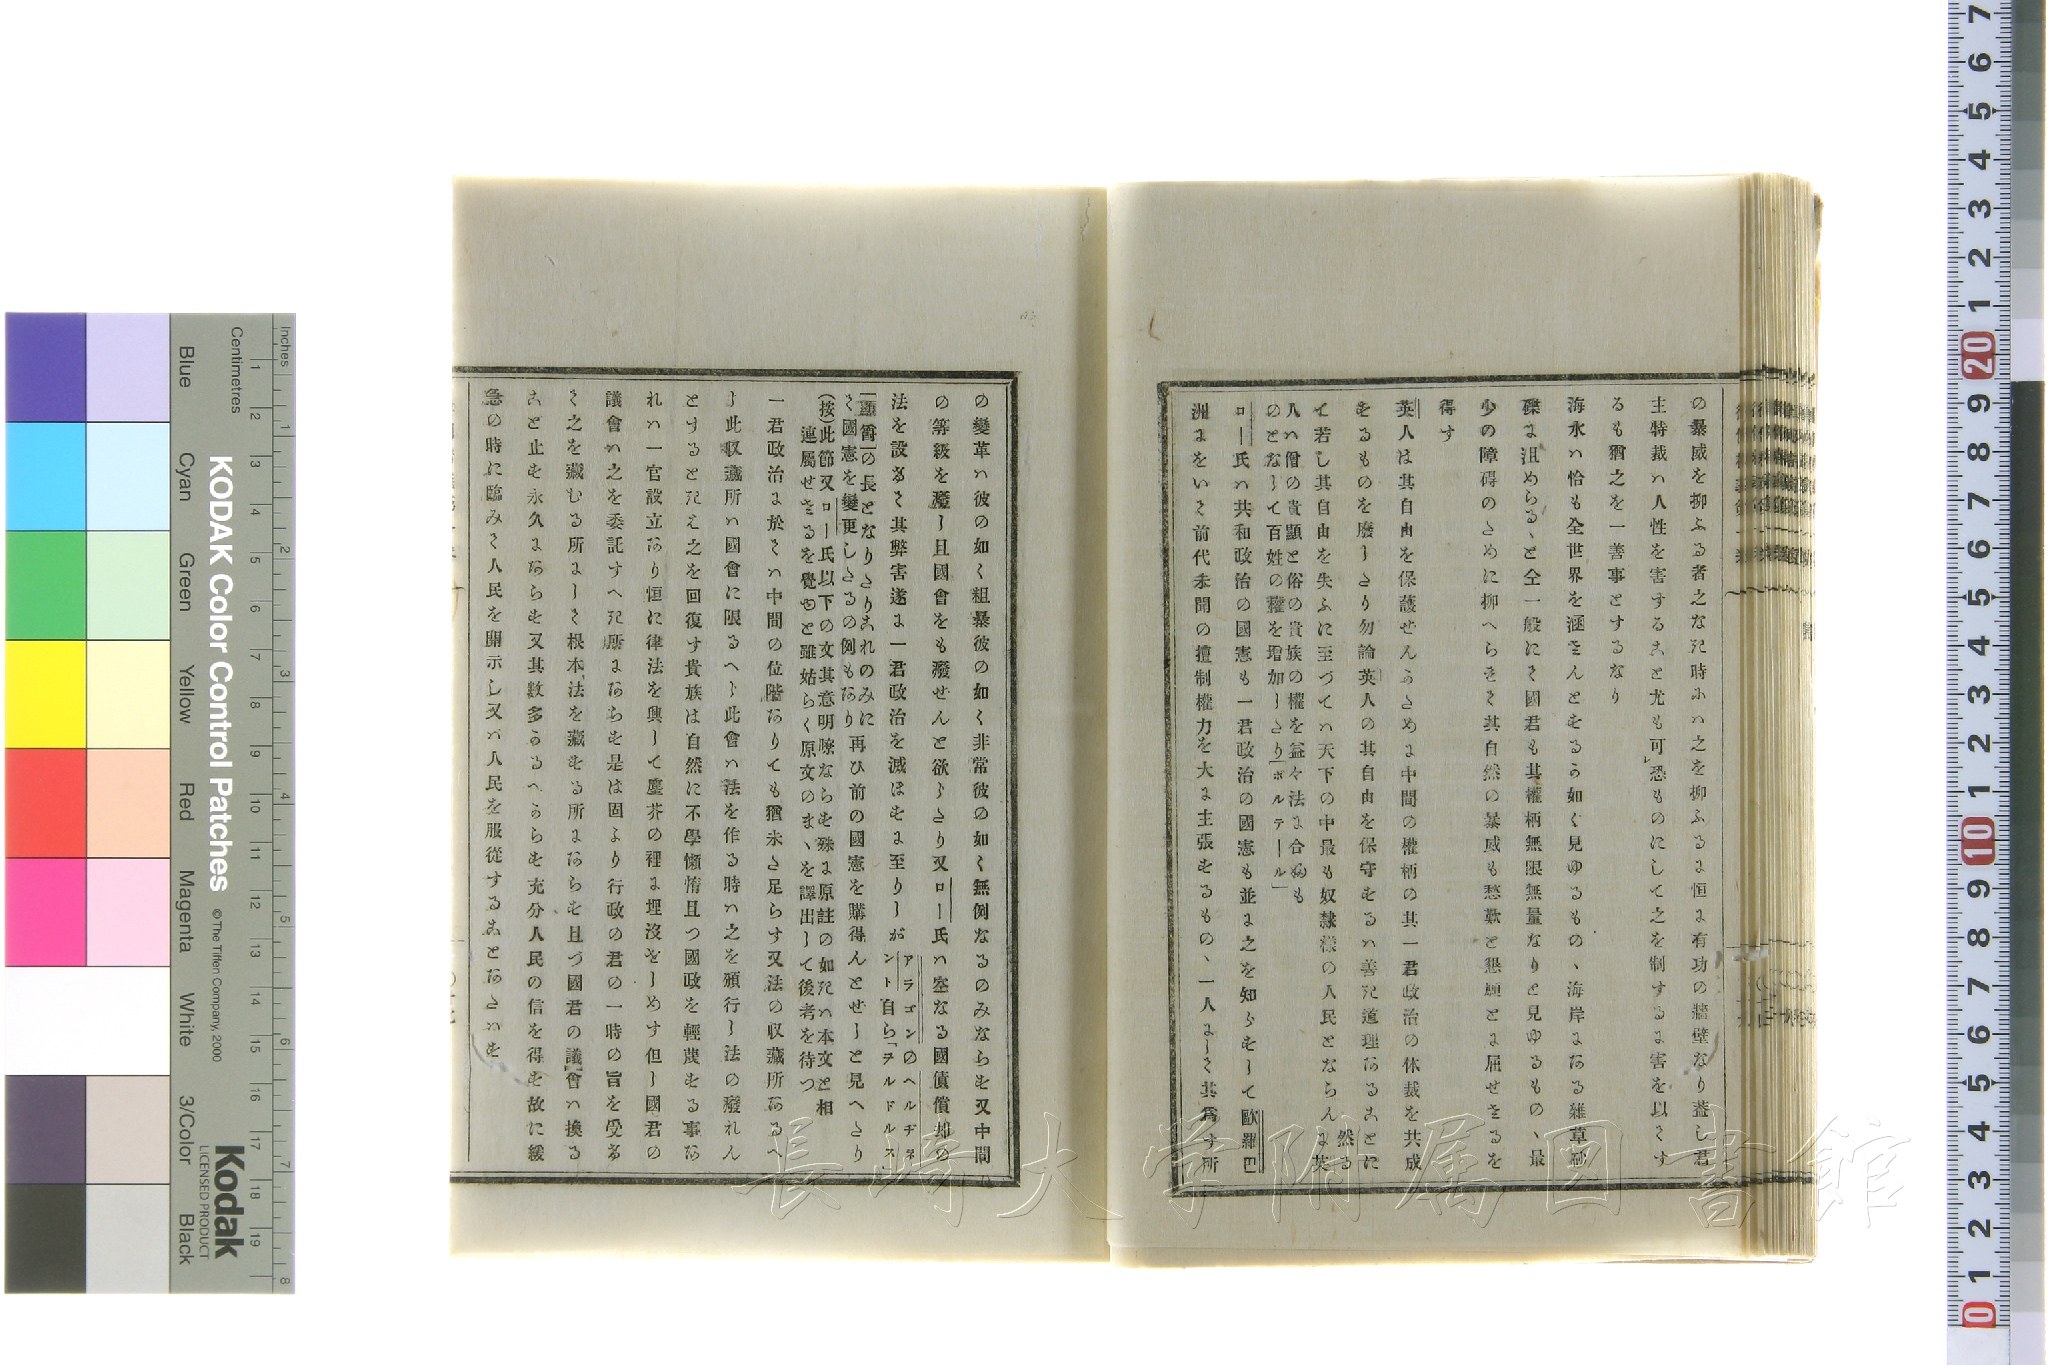 の暴威を抑ふる者之なき時ふハ之を抑ふるま恒ま有功の牆壁なり蓋し君
主特裁ハ人性を害するまと尤も可恐ものにして之を制するま害を以てす
るも猶之を一善事とするなり
海水ハ恰も全世界を涵さんとをるら如く見ゆるもの、海岸まある雑草砂
礫ま沮めらる、と仝一般にて國君も其權柄無限無量なりと見ゆるもの、最
少の障碍のために抑へられて其自然の暴威も愁歎と懇願とま屈せさるを
得す
英人は其自由を保護せんらために中間の權柄の其一君政治の休裁を共成
をるものを廢したり勿論英人の其自由を保守をるハ善き道理あるまとに 然る
て若し其自由を失ふに至つてハ天下の中最も奴隸樣の人民とならんま英
人ハ僧の貴顯と俗の貴族の權を益々法ま合ぬも
のとなして百姓の權を增加したり「ボルテール」
ロー氏ハ共和政治の國憲も一君政治の國憲も並ま之を知らをして歐羅巴
洲まをいて前代未聞の擅制權力を大ま主張をるもの、一人まして其爲す所
の變革ハ彼の如く粗暴彼の如く非常彼の如く無例なるのみならを又中間
の等級を廢し且國會をも廢せんと欲したり又ロー氏ハ空なる國債償却の
法を設るて其弊害遂ま一君政治を滅ほをま至りしが アラゴンのヘルヂネ
ント自ら「ヲルドルス
「顯脅」の長となりたりまれのみに
て國憲を變更したるの例もあり再ひ前の國憲を購得んとせしと見へたり
(按)此節又ロー氏以下の文其意明瞭ならを殊ま原註の如きハ本文と相
連屬せさるを覺ゆと雖姑らく原文のまゝを譯出して後考を待つ
一君政治ま於てハ中間の位階ありても猶未た足らす又法の収藏所あるへ
し此収藏所ハ國會に限るへし此會ハ法を作る時ハ之を頒行し法の廢れん
とするときえ之を回復す貴族は自然に不學懶惰且つ國政を輕蔑をる事あ
れハ一官設立あり恒に律法を興して塵芥の裡ま埋沒をしめす但し國君の
議會ハ之を委託すへき所まあらを是は固より行政の君の一時の旨を受る
て之を藏むる所まして根本法を藏をる所まあらを且つ國君の議會ハ換る
まと止を永久まあらを又其數多らるへらを充分人民の信を得を故に緩
急の時に臨みて人民を開示し又ハ人民を服從するまとあたハを
長崎大学附属図書館
KODAK Color Control Patches
© The Tiffen Company, 2000
Kodak
LICENSED PRODUCT
Inches
Centimetres
Blue
Cyan
Green
Yellow
Red
Magenta
White
3/Color
Black